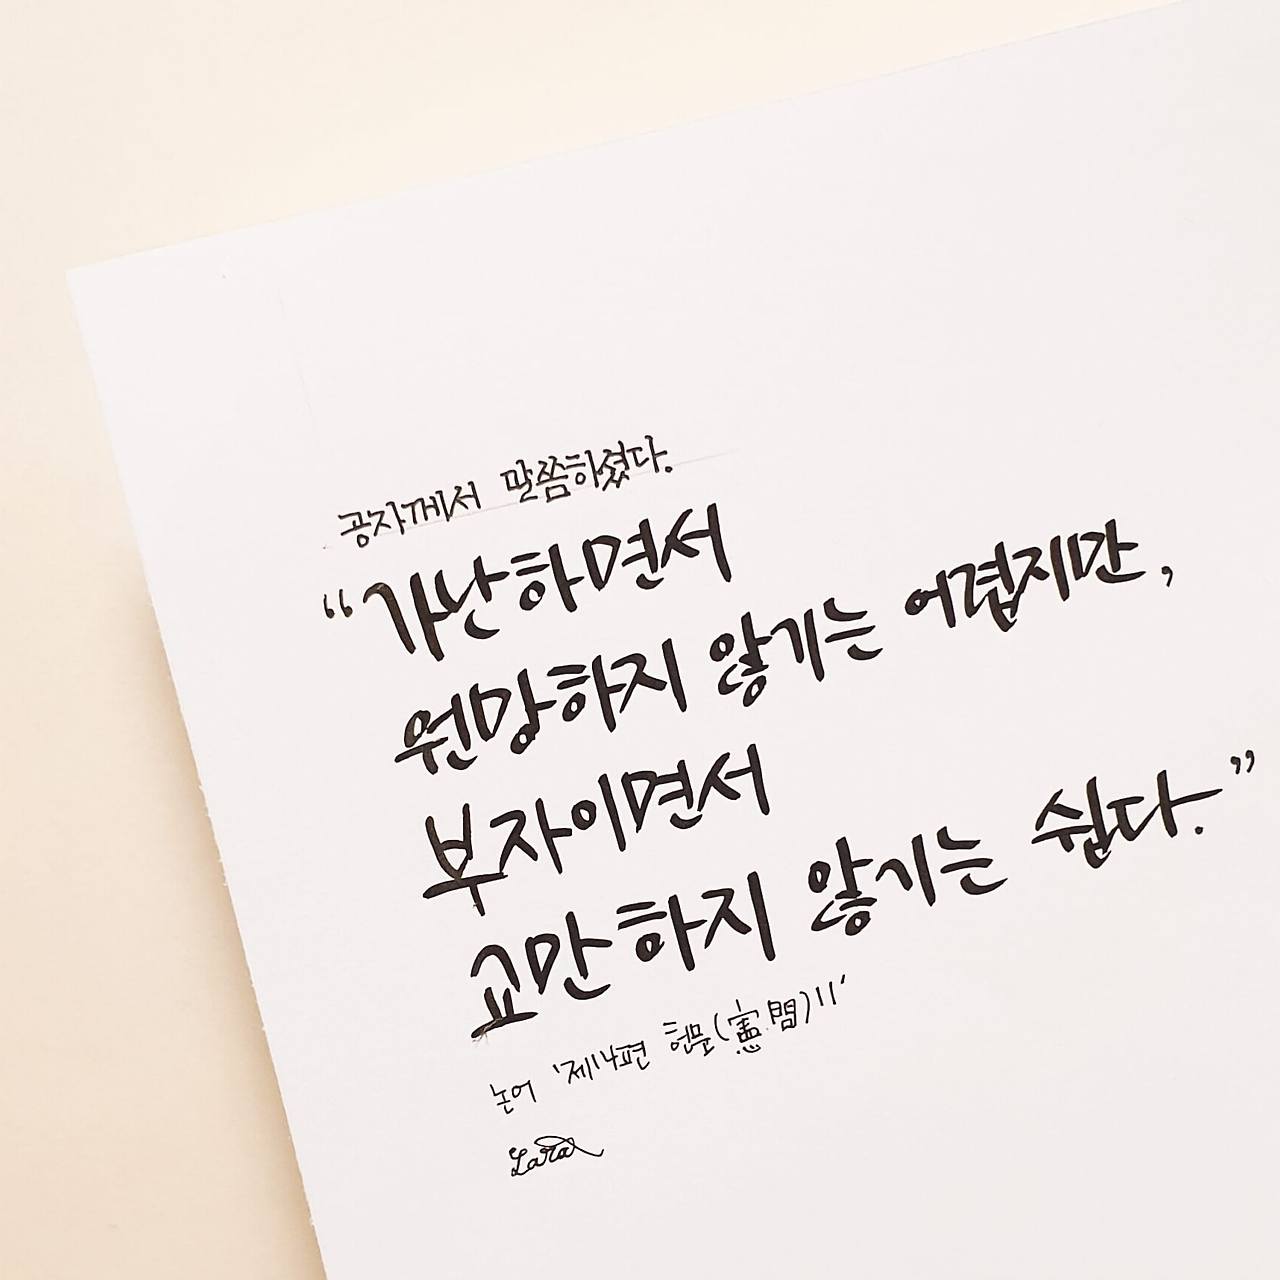 공자께서 말씀하셨다.
“가난하면서
원망하지 않기는 어렵지만,
부자이면서
교만하지 않기는 쉽다.”
논어 '제14편 헌문(憲問)11'
Lara